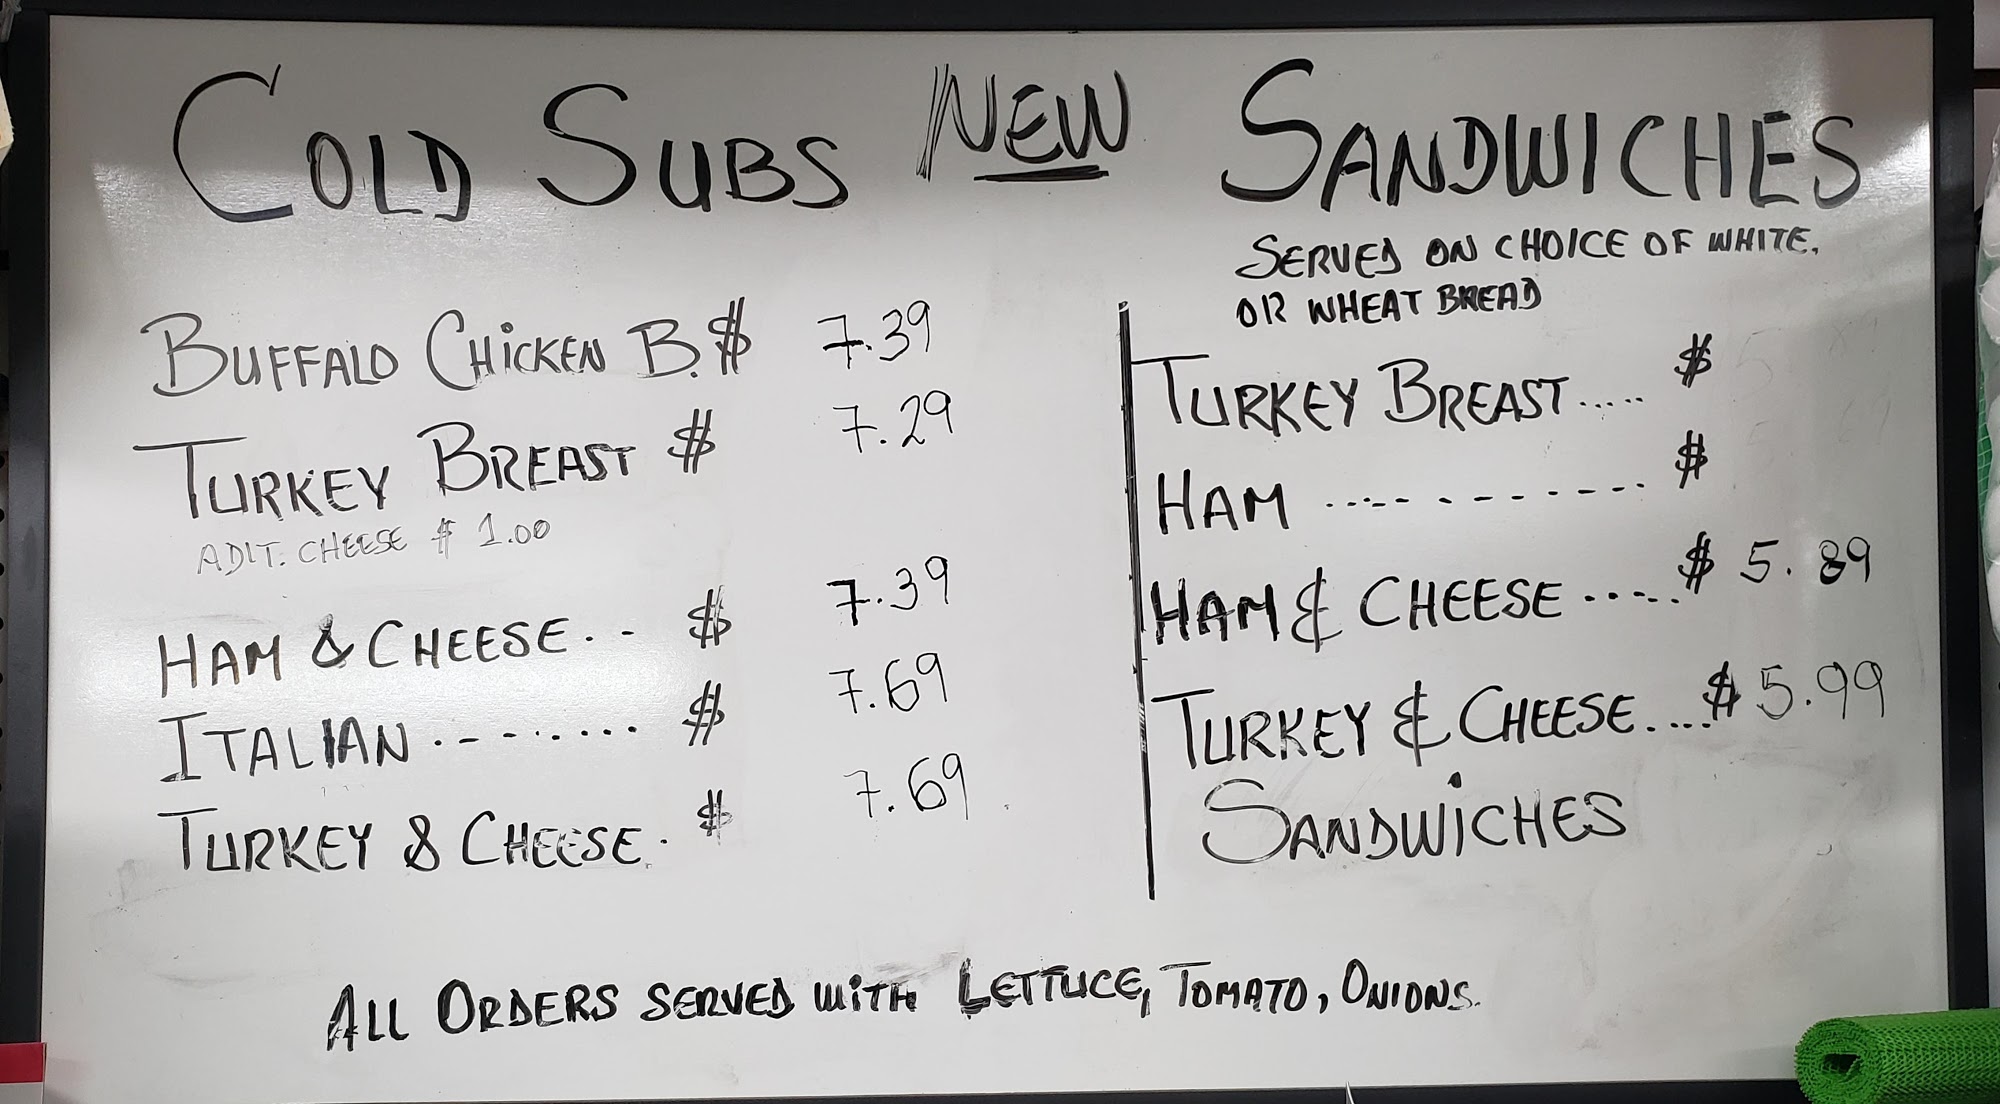 COLD SUBS NEW SANDWICHES
SERVED ON CHOICE OF WHITE.
OR WHEAT BREAD
BUFFALO CHICKEN B. $ 7.39
TURKEY BREAST $ 7.29
ADIT. CHEESE $ 1.00
HAM & CHEESE.. - $ 7.39
ITALIAN ......... $ 7.69
TURKEY & CHEESE. $ 7.69
TURKEY BREAST..... $
HAM ............ $
HAM & CHEESE ..... $ 5.89
TURKEY & CHEESE.... $ 5.99
SANDWiCHES
ALL ORDERS SERVED WiTH LETTUCE, TOMATO, ONIONS.